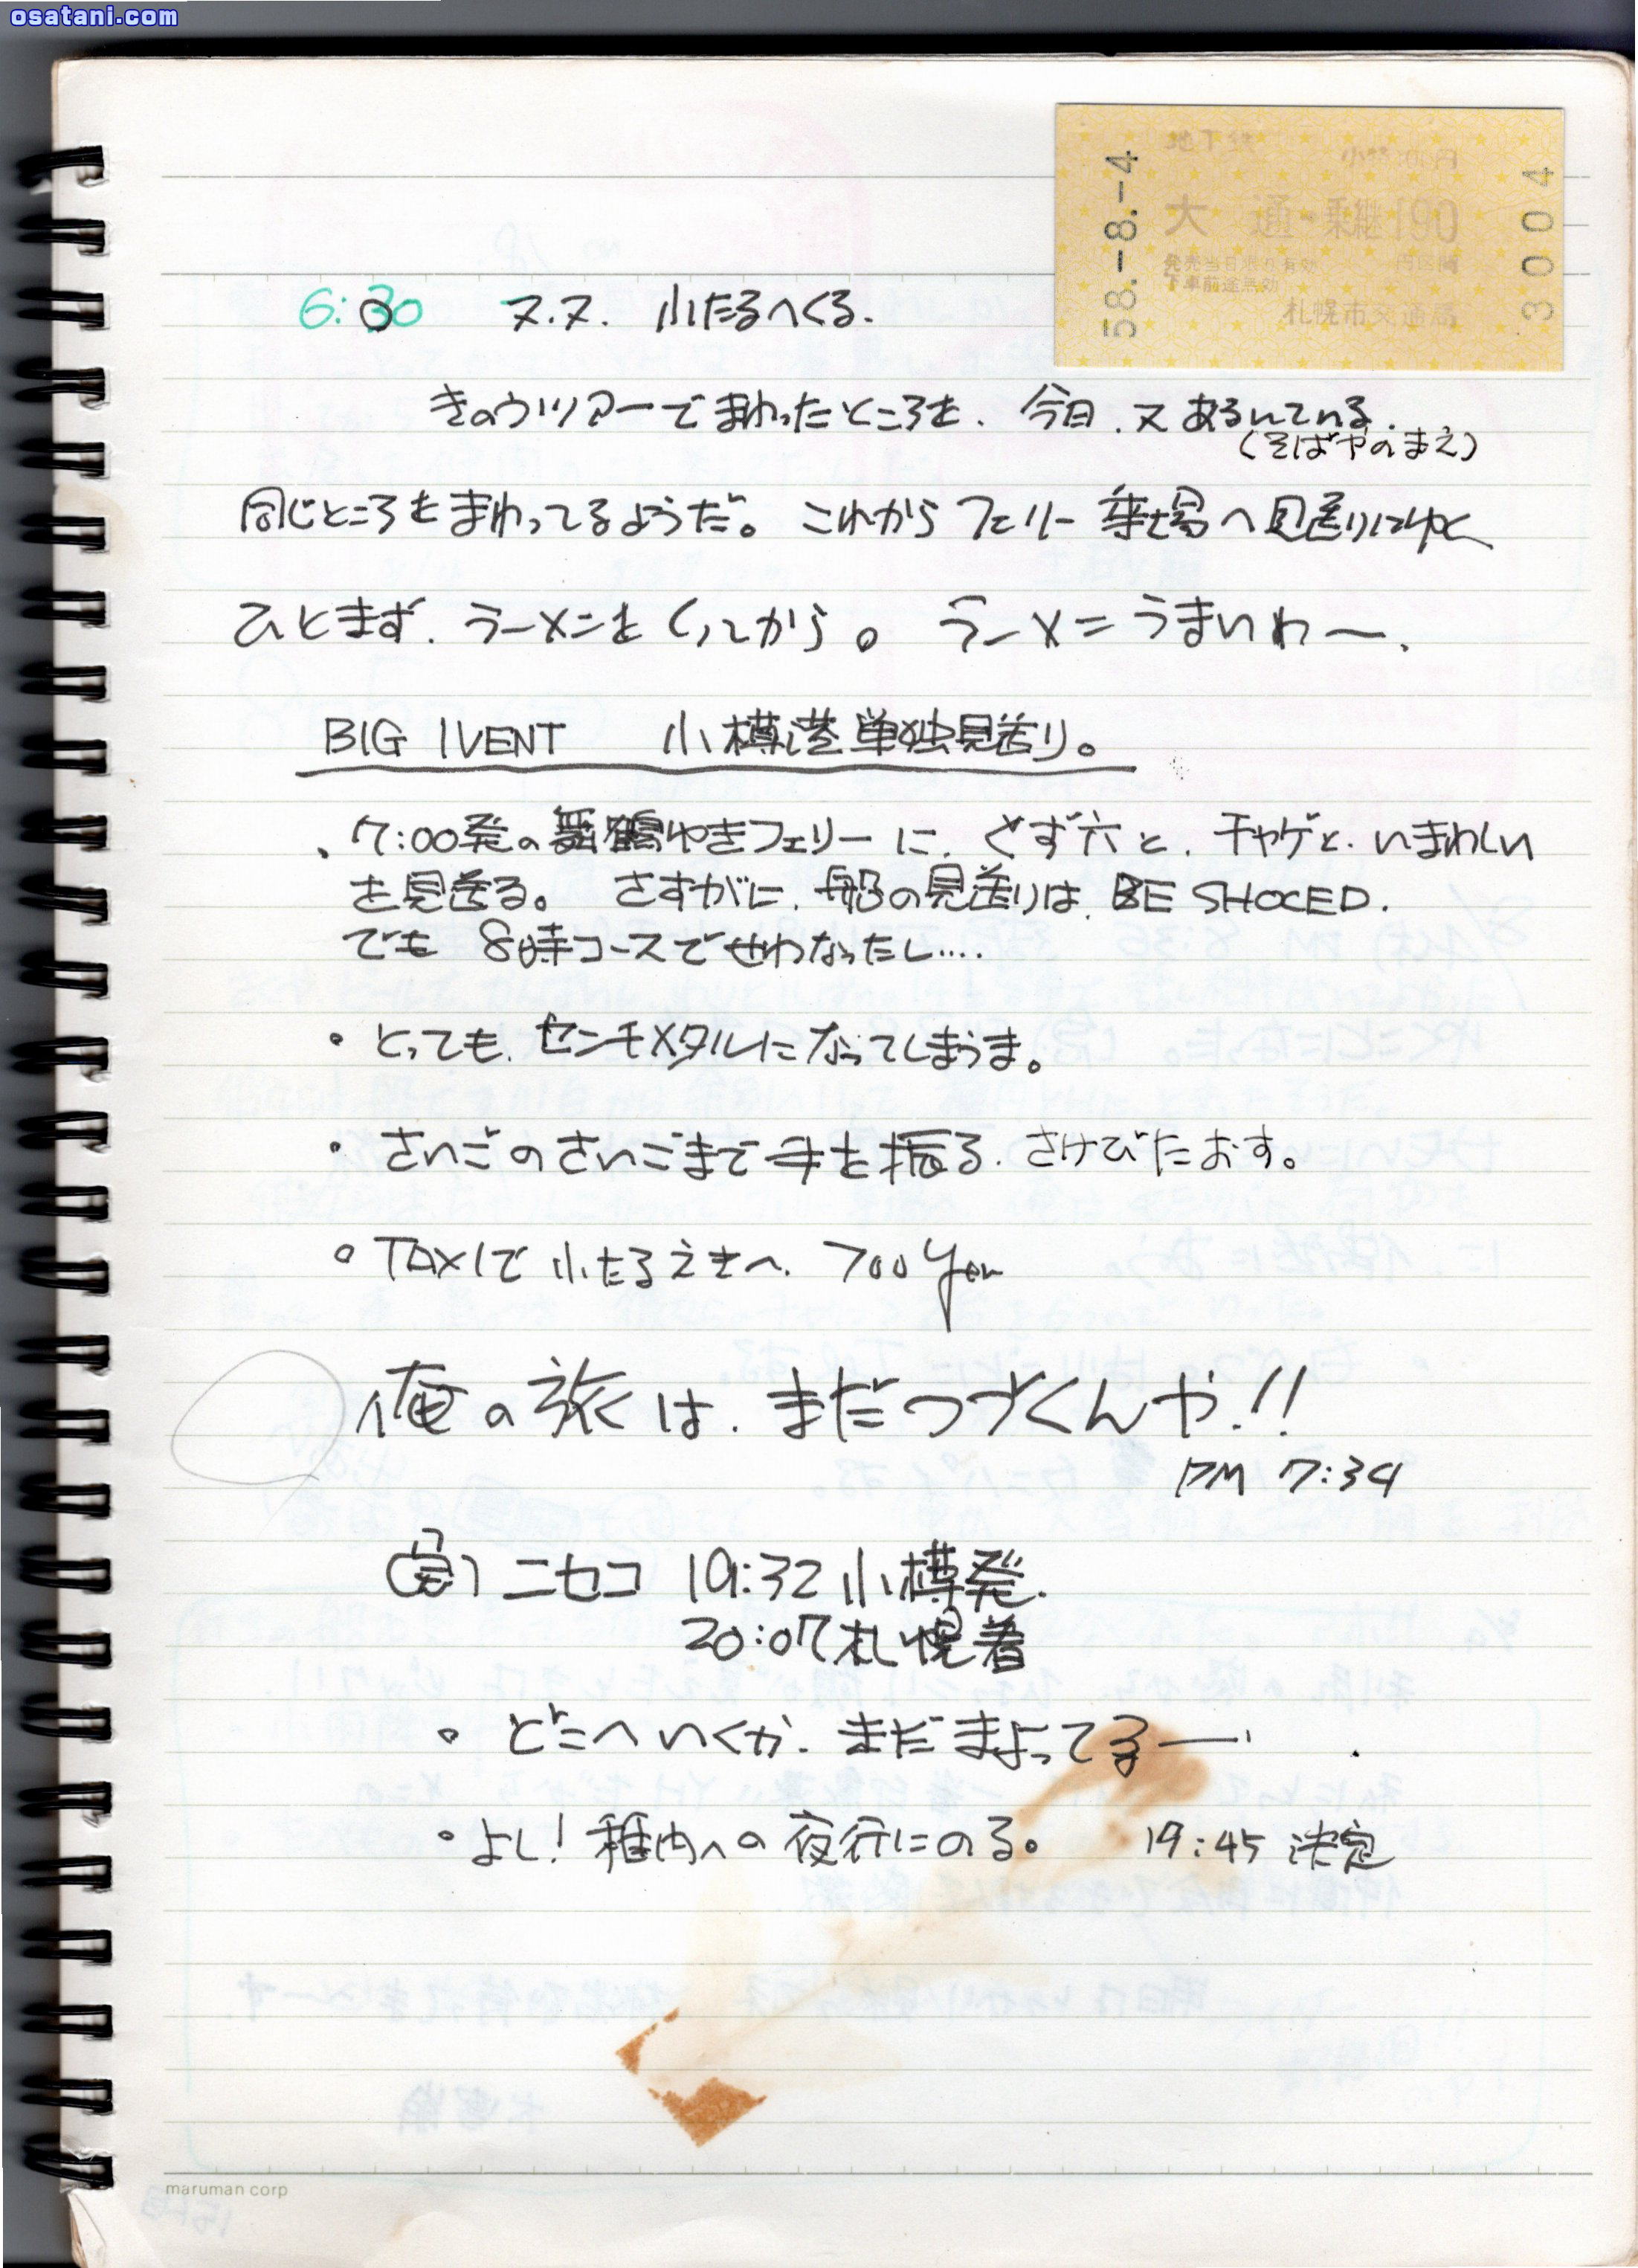 osatani.com
地下鉄
58.-8.-4
大 通・乗継190
発売当日限り有効
下車前途無効
札幌市交通局
3004
6:30 ヌ.ヌ. 小たるへくる.
きのうツアーでまわったところを、今日、又あるいている.
(そばやのまえ)
同じところをまわってるようだ。これからフェリー乗場へ見送りにゆく
ひとまず、ラーメンをくってから。ラーメンうまいわー、
BIG IVENT 小樽港単独見送り。
、7:00発の舞鶴ゆきフェリーに、ぐず六と、チャゲと、いまわしい
を見送る。さすがに、船の見送りは、BE SHOCED.
でも 8時コースでせわなったし....
・とっても、センチメタルになってしまうま。
・さいごのさいごまで手を振る、さけびたおす。
・TAXIで小たるえきへ、700yen
俺の旅は、まだつづくんや.!!
PM 7:34
(急)ニセコ 19:32小樽発.
20:07札幌着
・どこへいくか、まだまよってるー
・よし!稚内への夜行にのる。 19:45 決定
maruman corp